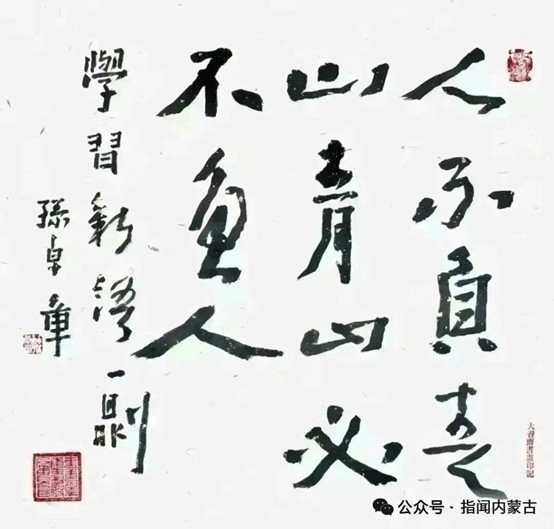 人不負青
山青山必
不負人
學習新語一則
孫卓章
公众号 · 指闻内蒙古